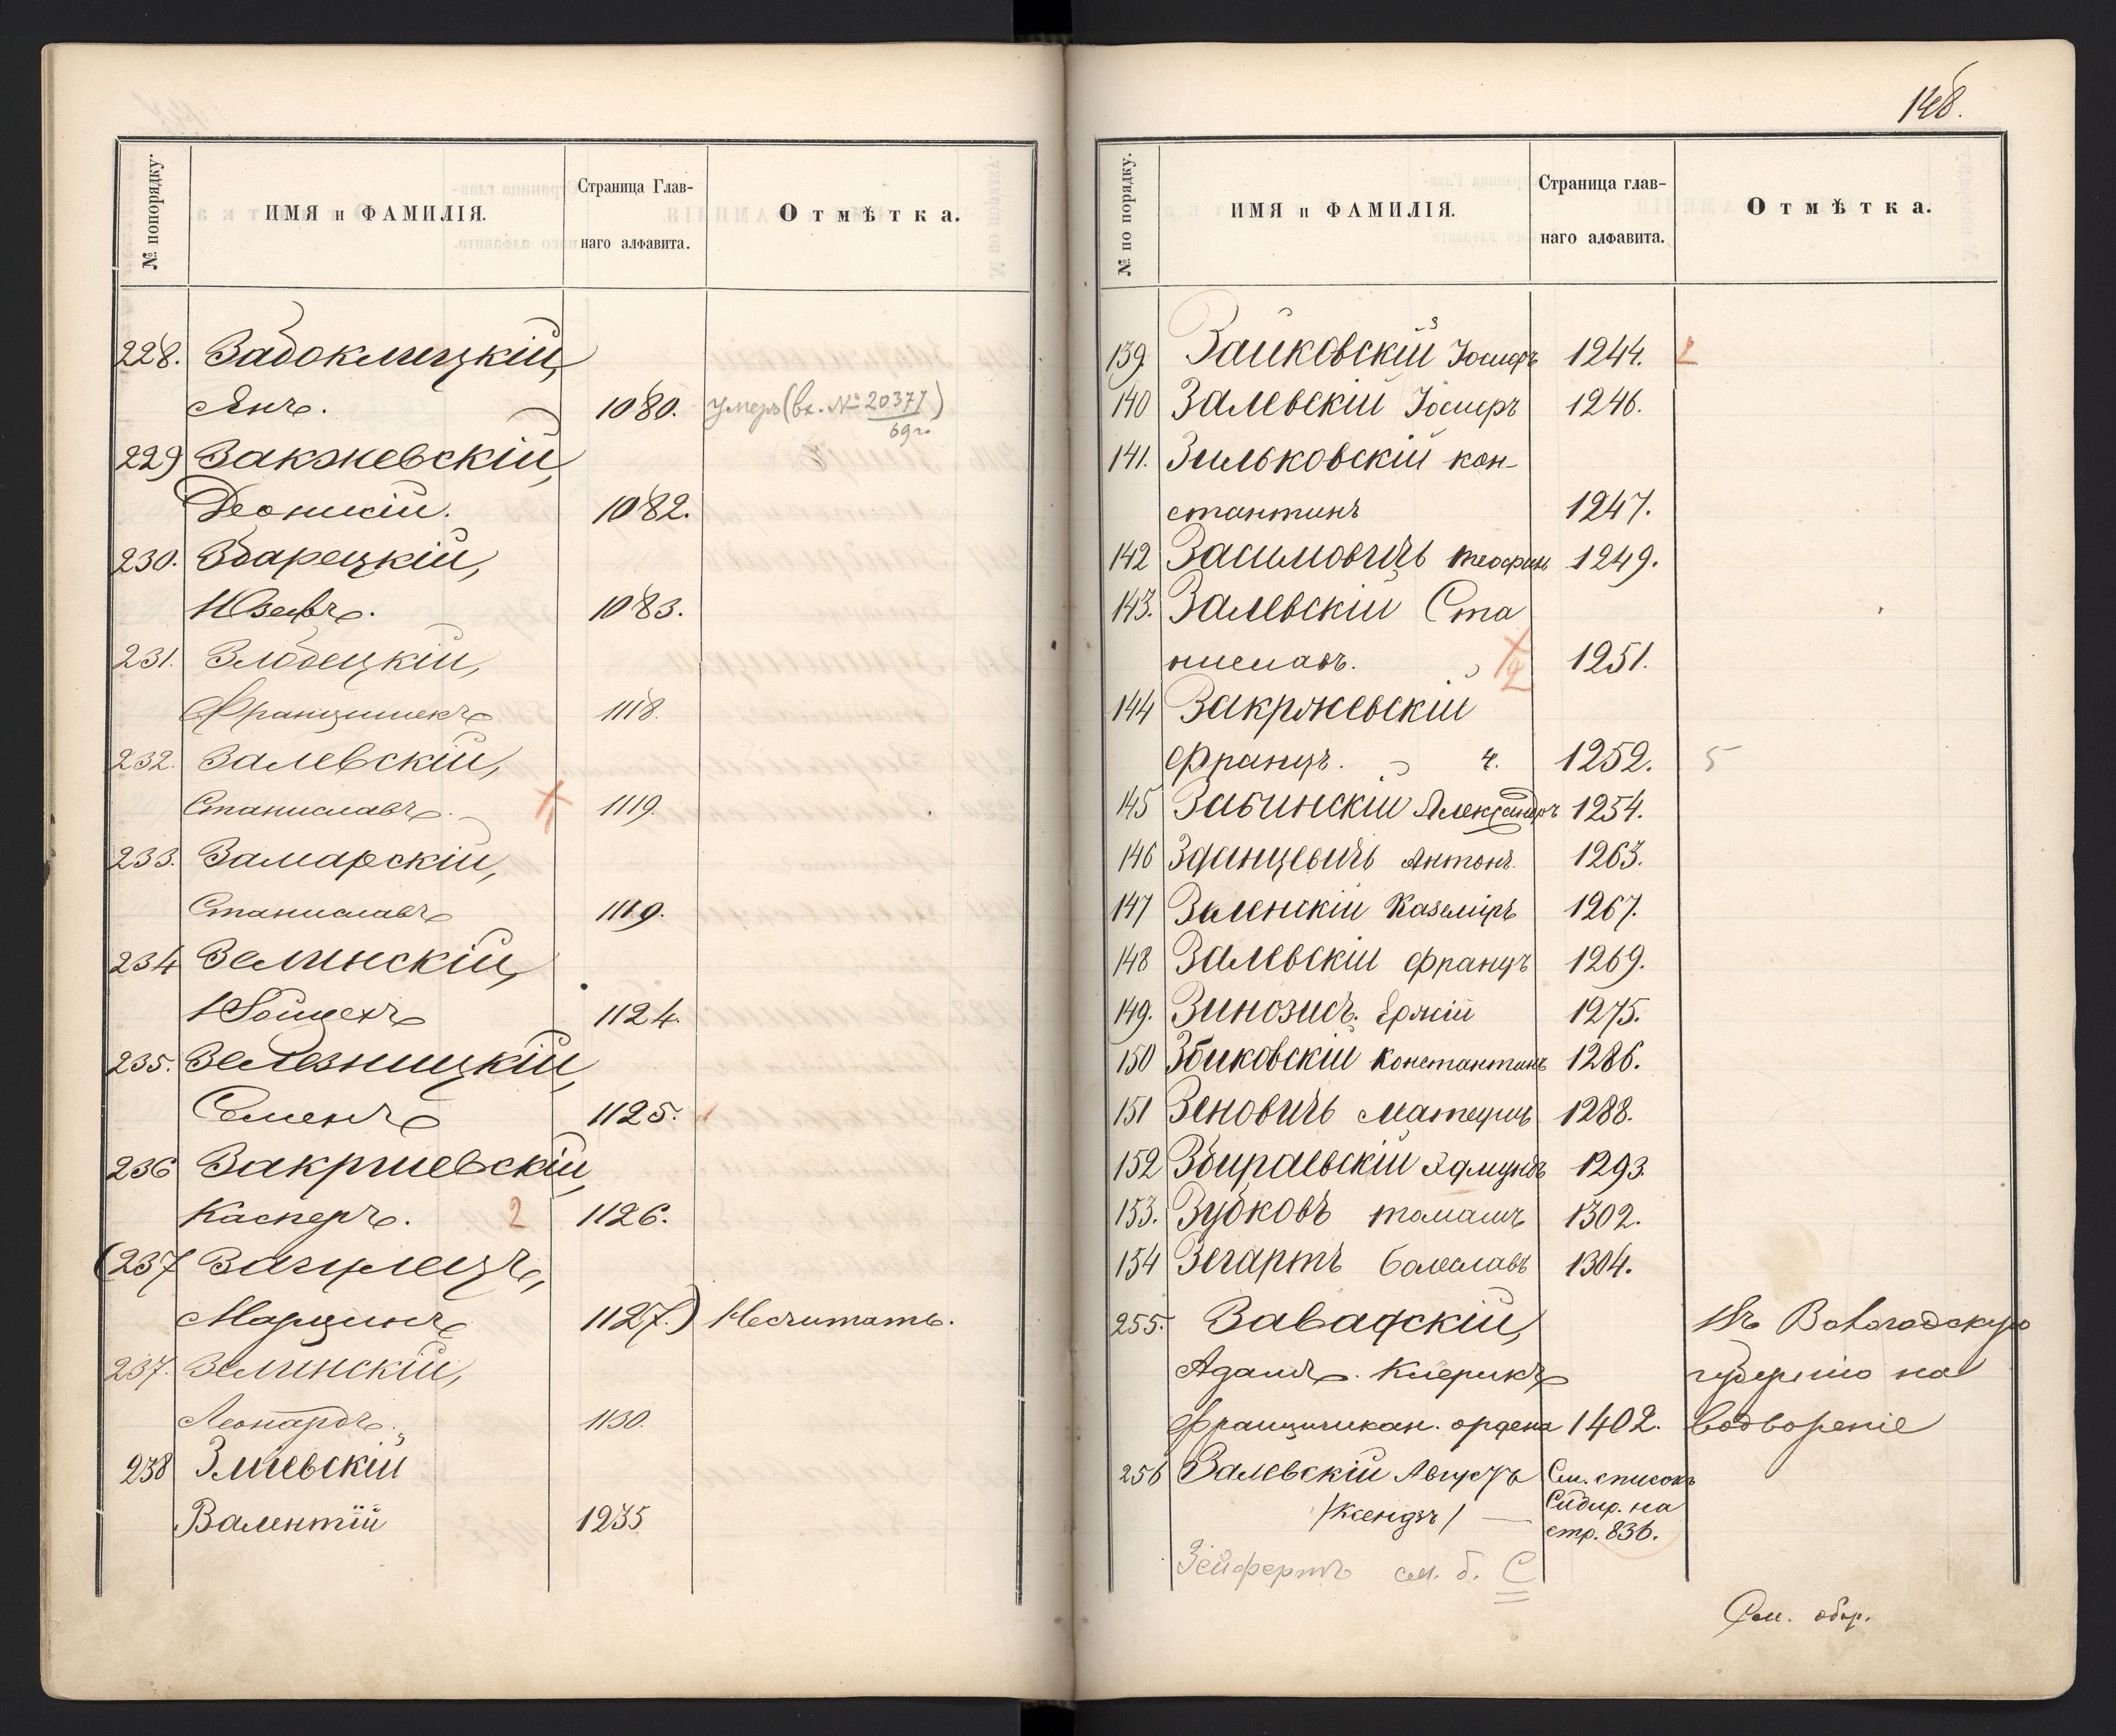 № попорядку.
ИМЯ и ФАМИЛІЯ.
Страница Глав-
наго алфавита.
Отмѣтка.
228. Задоклицкій,
Янъ. 1080. умеръ (вх. № 20377)
69 г.
229) Закжевскій,
Деонисій. 1082.
230. Збарецкій,
Юзефъ. 1083.
231. Злобецкій,
Францишекъ 1118.
232. Залевскій,
Станиславъ. 1119.
233. Замарскій,
Станиславъ 1119.
234 Зелинскій,
Войцехъ 1124.
235. Зелезницкій,
Семенъ 1125.
236 Закржевскій,
Касперъ. 2 1126.
(237
Марцинъ 1127.) Несчитать.
237. Зелинскій,
Леонардъ. 1130.
238 Зміевскій
Валентій 1235
148.
№ по порядку.
ИМЯ и ФАМИЛІЯ.
Страница глав-
наго алфавита.
Отмѣтка.
139. Зайковскій Іосифъ 1244.
140 Залевскій Іосифъ 1246.
141. Зильковскій кон-
стантинъ 1247.
142 Засимовичъ Теофил 1249.
143. Залевскій Ста
ниславъ. 1251.
144 Закржевскій
Францъ. 4. 1252. 5
145 Забинскій Александръ 1254.
146 Зданцевичъ Антонъ. 1263.
147 Заленскій Каземіръ 1267.
148 Залевскій Францъ 1269.
149. Ержій 1275.
150 Збиковскій Константинъ 1286.
151 Зеновичъ Матеушъ 1288.
152 Збираевскій Эдмундъ 1293.
153. Зубковъ томашъ 1302.
154 Зегартъ Болеславъ 1304.
255. Завадскій, Въ Вологодскую
Адамъ. Клерикъ губернію на
Францишкан. ордена 1402. водвореніе
256 Залевскій Августъ См. списокъ
/Ксендзъ/ — Сибир. на
стр. 836.
Зейфертъ см. б. С
См. обор.